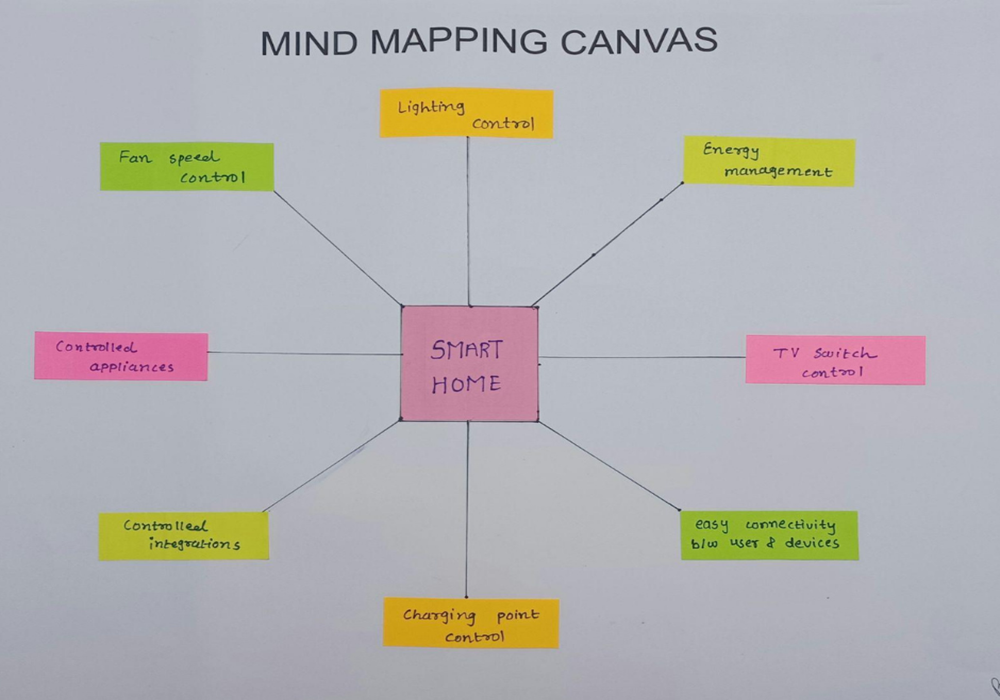 MIND MAPPING CANVAS
Lighting
control
Fan speed
control
Energy
management
Controlled
appliances
SMART
HOME
TV Switch
control
Controlled
integrations
easy connectivity
b/w user & devices
Charging point
control